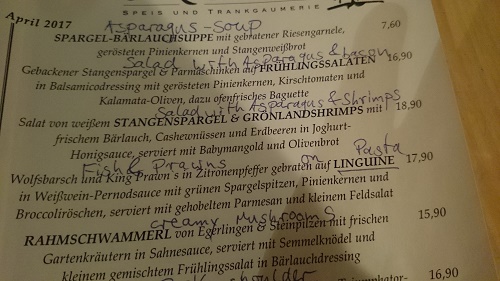 SPEIS UND TRANKGAUMERIE
April 2017
Asparagus-Soup
SPARGEL-BÄRLAUCHSUPPE mit gebratener Riesengarnele, 7,60
gerösteten Pinienkernen und Stangenweißbrot
Salad with Asparagus & bacon
Gebackener Stangenspargel & Parmaschinken auf FRÜHLINGSSALATEN 16,90
in Balsamicodressing mit gerösteten Pinienkernen, Kirschtomaten und
Kalamata-Oliven, dazu ofenfrisches Baguette
Salad with Asparagus & Shrimps
Salat von weißem STANGENSPARGEL & GRÖNLANDSHRIMPS mit 18,90
frischem Bärlauch, Cashewnüssen und Erdbeeren in Joghurt-
Honigsauce, serviert mit Babymangold und Olivenbrot
Fish & Prawns on Pasta
Wolfsbarsch und King Prawn's in Zitronenpfeffer gebraten auf LINGUINE 17,90
in Weißwein-Pernodsauce mit grünen Spargelspitzen, Pinienkernen und
Broccoliröschen, serviert mit gehobeltem Parmesan und kleinem Feldsalat
creamy Mushrooms
RAHMSCHWAMMERL von Egerlingen & Steinpilzen mit frischen 15,90
Gartenkräutern in Sahnesauce, serviert mit Semmelknödel und
kleinem gemischtem Frühlingssalat in Bärlauchdressing
shoulder
Triumphator-
16,90